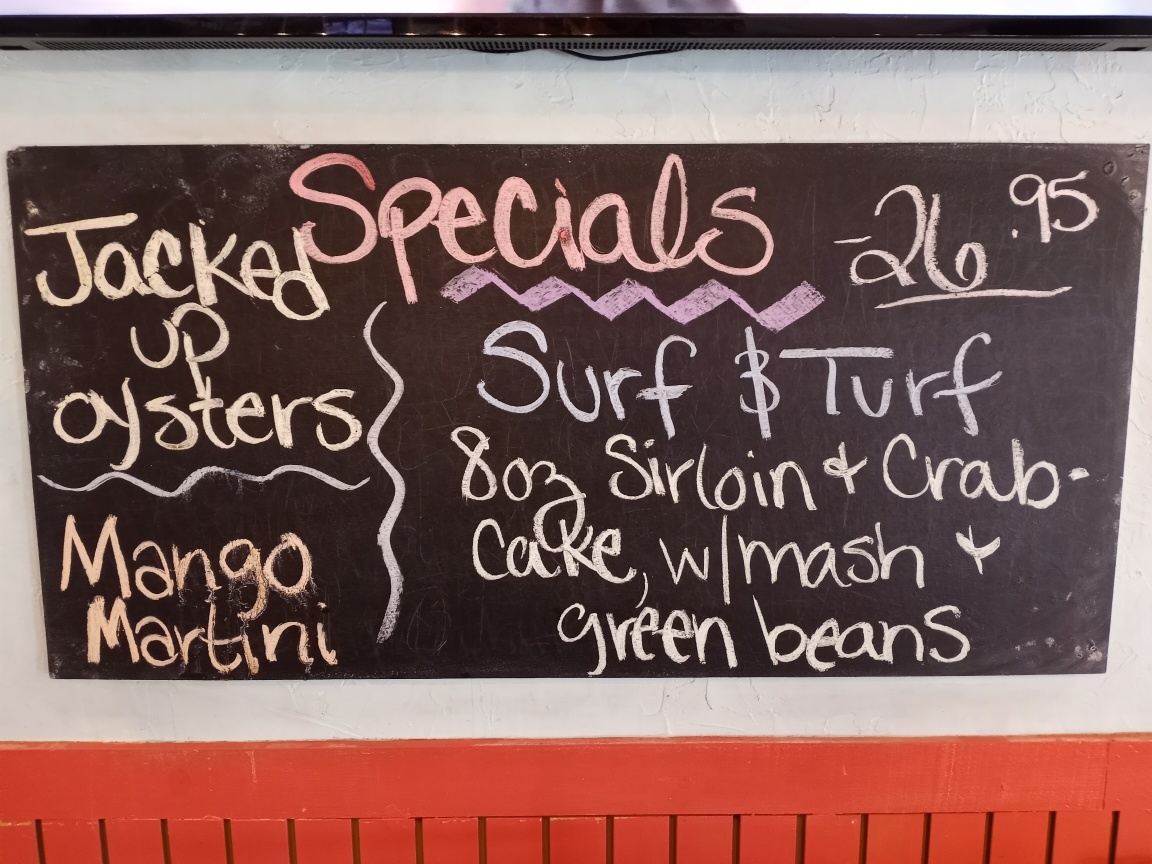 Specials
Jacked
up
oysters
Mango
Martini
-26.95
Surf & Turf
8oz Sirloin & Crab-
Cake, w/mash &
green beans